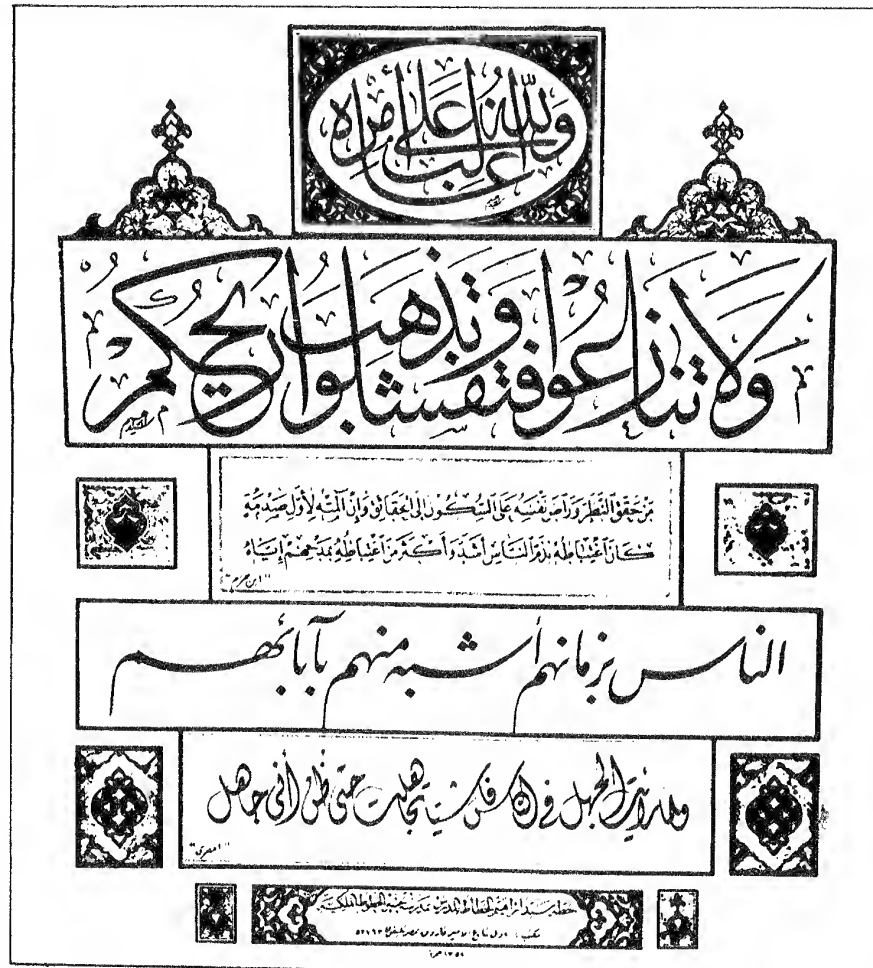 والله غالب على أمره
ولا تنازعوا فتفشلوا وتذهب ريحكم
من حقق النظر وراض نفسه على السكون إلى الحقائق وإن آلمته لأول صدمة
كان اغتباطه بذم الناس أشد وأكثر من اغتباطه بمدحهم إياه
"ابن حزم"
الناس بزمانهم أشبه منهم بآبائهم
ولما رأيت الجهل في الناس فاشيا تجاهلت حتى ظن أني جاهل
"المعري"
خطه سيد إبراهيم الخطاط المدرس بمدرسة تحسين الخطوط الملكية